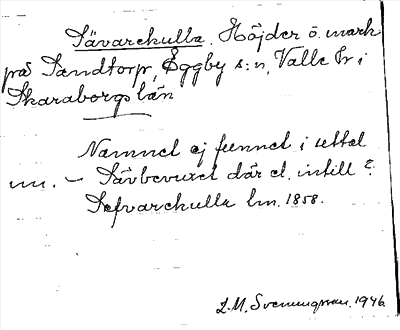 Sävarekulla. Höjder ö. mark
på Sandtorp, Eggby s:n, Valle hr i
Skaraborgs län
Namnet ej funnet i uttal
nu. — Sävbevuxet där el. intill?
Sefvarekulla lm. 1858.
L.M. Svenungsson. 1946.